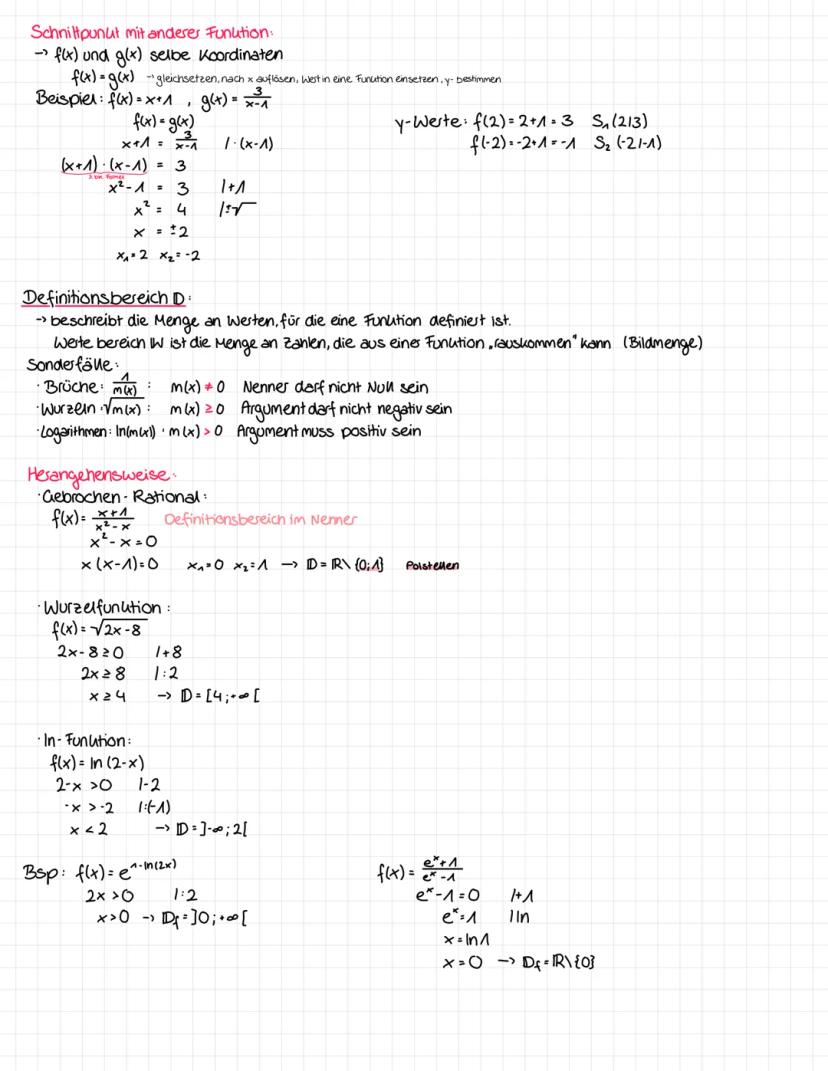 Schnittpunkt mit anderer Funktion:
→ f(x) und g(x) selbe Koordinaten
f(x) = g(x) → gleichsetzen, nach x auflösen, Wert in eine Funktion einsetzen, y- bestimmen
Beispiel: f(x) = x+1 , g(x) = 3/(x-1)
f(x) = g(x)
x+1 = 3/(x-1) | · (x-1)
(x+1) · (x-1) = 3
3. bin. Formel
x² - 1 = 3 | +1
x² = 4 | ±√
x = ±2
x₁ = 2 x₂ = -2
y-Werte: f(2) = 2+1 = 3 S₁ (2|3)
f(-2) = -2+1 = -1 S₂ (-2|-1)
Definitionsbereich 𝔻:
→ beschreibt die Menge an Werten, für die eine Funktion definiert ist.
Werte bereich 𝕎 ist die Menge an Zahlen, die aus einer Funktion „rauskommen" kann (Bildmenge)
Sonderfälle:
· Brüche: 1/m(x) : m(x) ≠ 0 Nenner darf nicht Null sein
· Wurzeln √m(x) : m(x) ≥ 0 Argument darf nicht negativ sein
· Logarithmen: ln(m(x)) : m(x) > 0 Argument muss positiv sein
Herangehensweise:
· Gebrochen - Rational:
f(x) = (x+1)/(x²-x) Definitionsbereich im Nenner
x² - x = 0
x (x-1) = 0 x₁ = 0 x₂ = 1 → 𝔻 = ℝ\ {0;1} Polstellen
· Wurzelfunktion:
f(x) = √2x-8
2x - 8 ≥ 0 | +8
2x ≥ 8 | :2
x ≥ 4 → 𝔻 = [4; +∞ [
· ln - Funktion:
f(x) = ln (2-x)
2-x > 0 | -2
-x > -2 | :(-1)
x < 2 → 𝔻 = ]-∞; 2[
Bsp: f(x) = e^(1-ln(2x))
2x > 0 | :2
x > 0 → 𝔻f = ]0; +∞ [
f(x) = (eˣ+1)/(eˣ-1)
eˣ - 1 = 0 | +1
eˣ = 1 | ln
x = ln 1
x = 0 → 𝔻f = ℝ\{0}